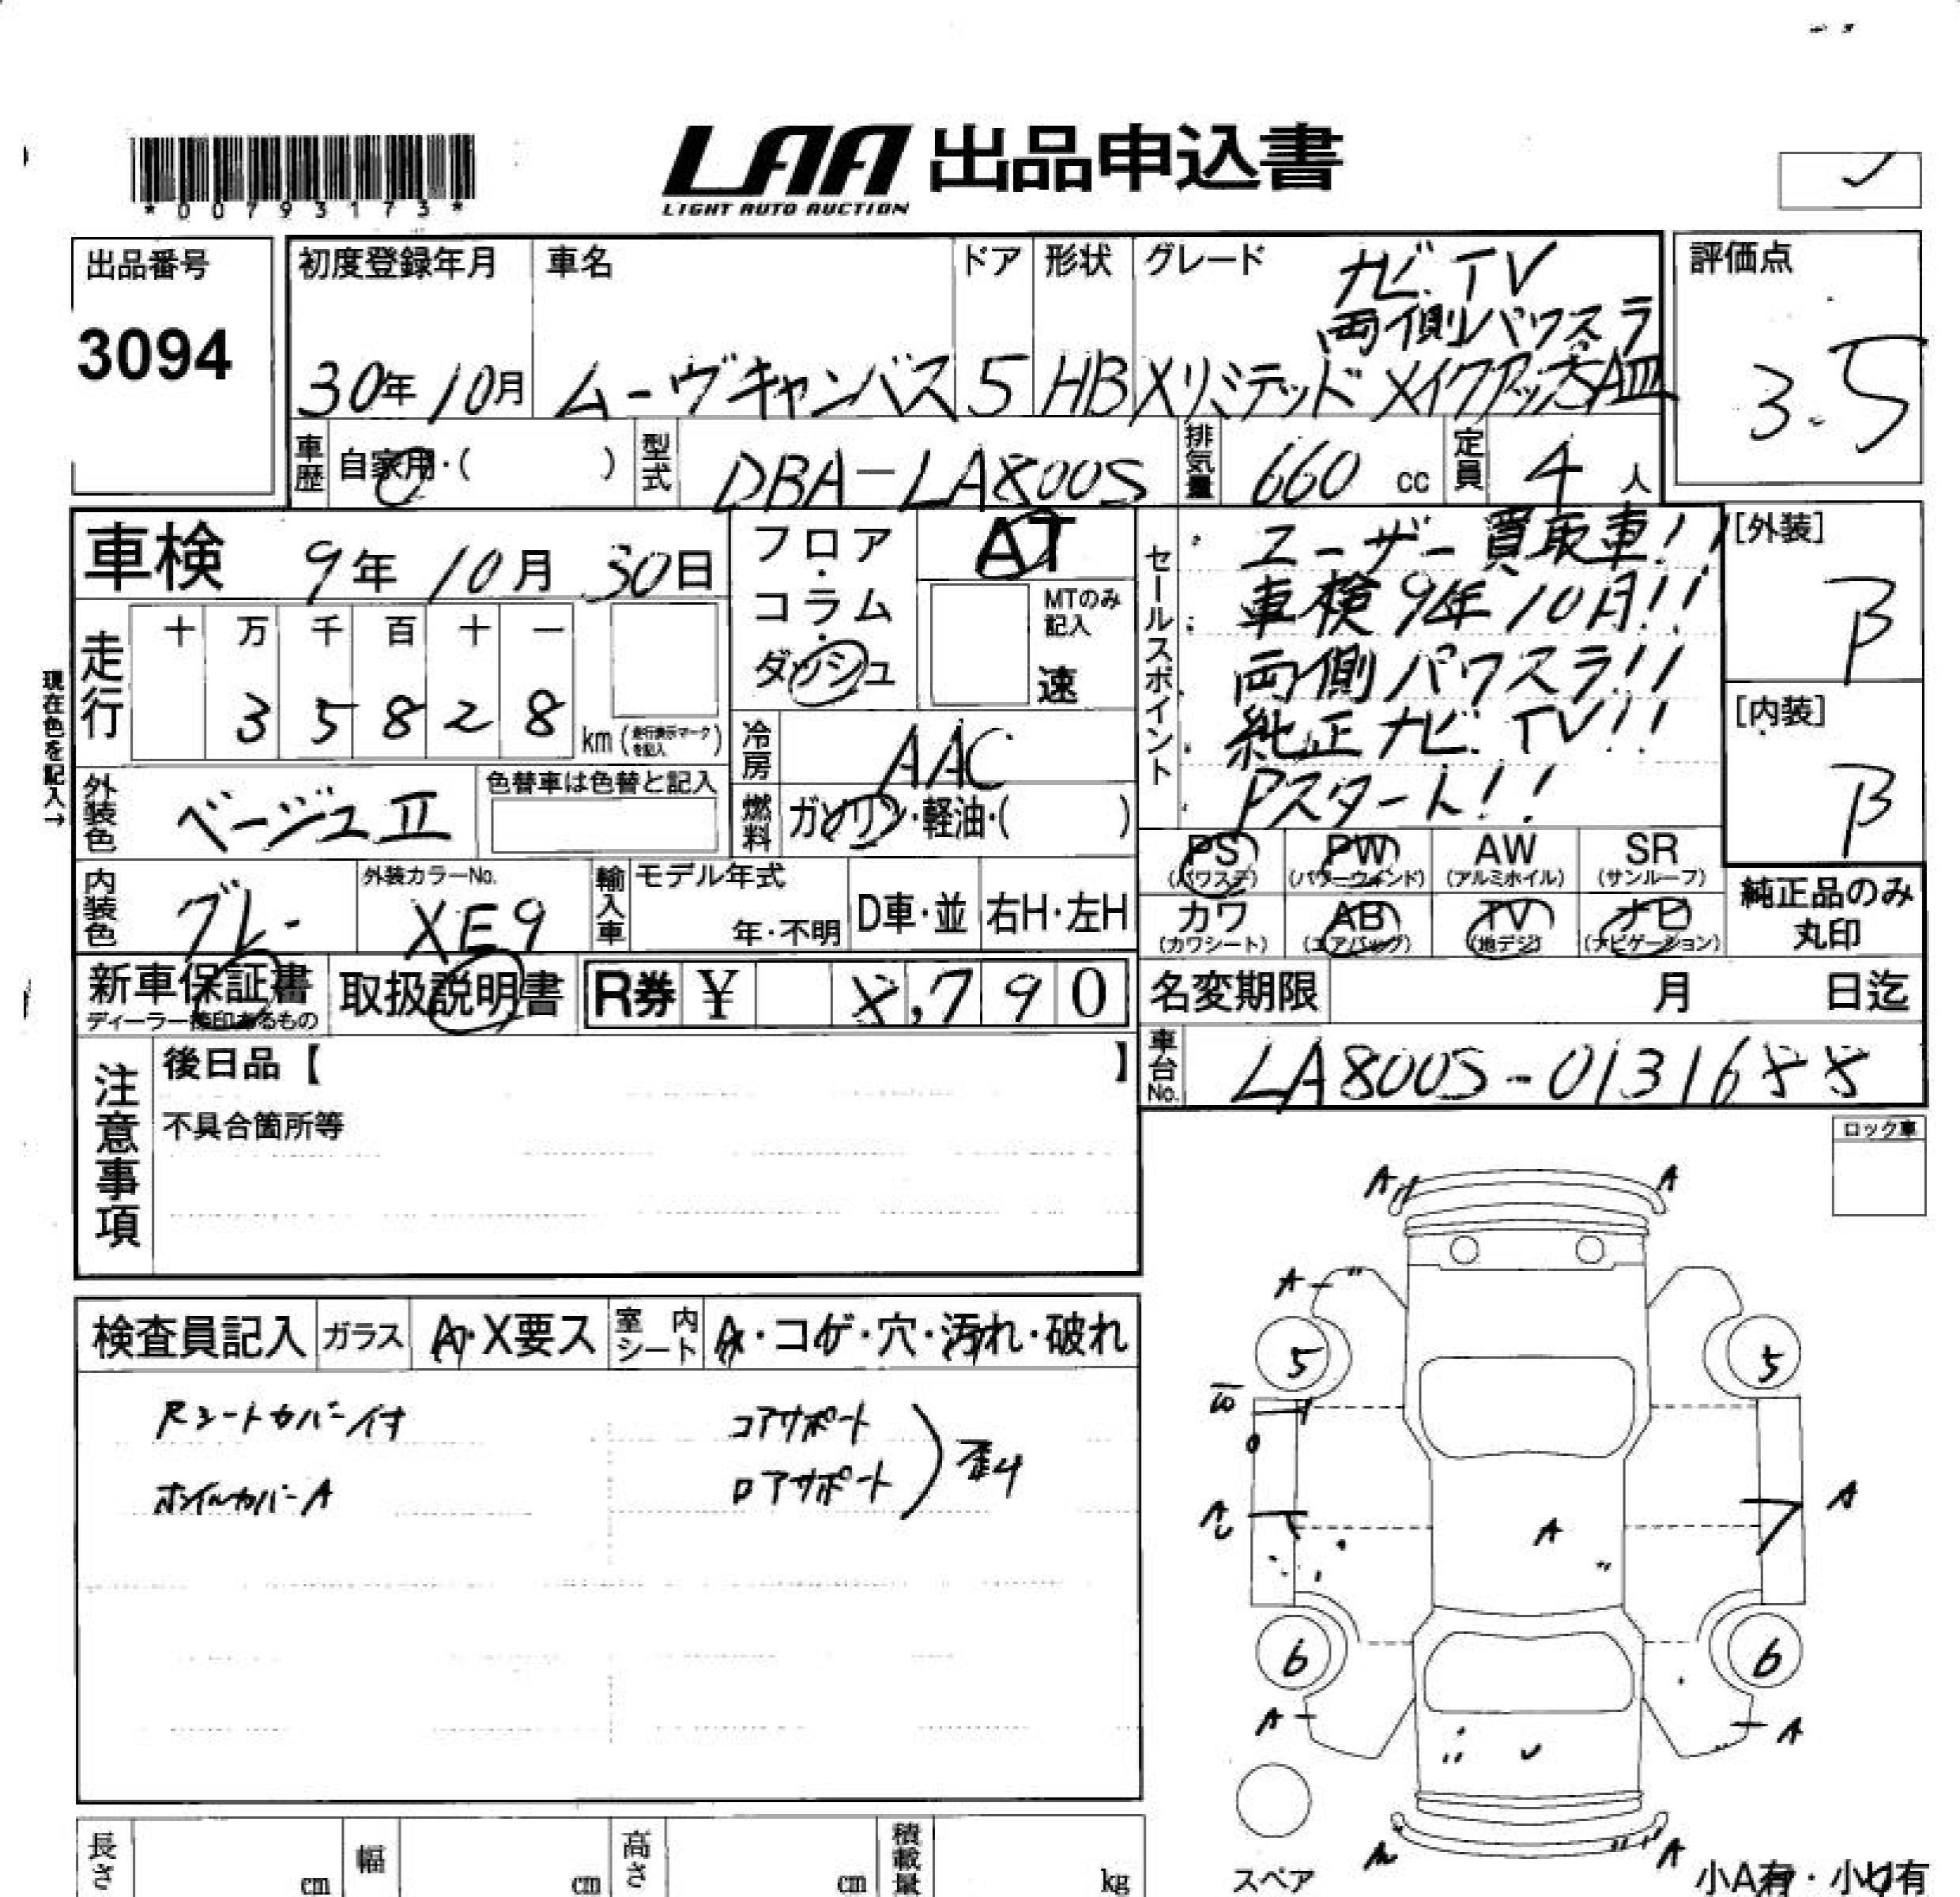 *00793173*
LAA 出品申込書
LIGHT AUTO AUCTION
出品番号
3094
初度登録年月
30年10月
車名
ムーヴキャンバス
ドア
5
形状
HB
グレード
ナビ.TV
両側パワスラ
Xリミテッド メイクアップSAⅢ
評価点
3.5
車歴 自家用・( )
型式 DBA-LA800S
排気量 660 cc
定員 4 人
車検 9年 10月 30日
フロア・コラム・ダッシュ
AT
MTのみ記入
速
走行
十 万 千 百 十 一
3 5 8 2 8
km (走行表示マークを記入)
現在色を記入→
外装色 ベージュⅡ
色替車は色替と記入
冷房 AAC
燃料 ガソリン・軽油・( )
内装色 グレー
外装カラーNo.
XE9
輸入車
モデル年式
年・不明
D車・並
右H・左H
セールスポイント
ユーザー買取車!!
車検9年10月!!
両側パワスラ!!
純正ナビ.TV!!
Pスタート!!
[外装]
β
[内装]
β
PS (パワステ)
PW (パワーウィンド)
AW (アルミホイル)
SR (サンルーフ)
カワ (カワシート)
AB (エアバッグ)
TV (地デジ)
ナビ (ナビゲーション)
純正品のみ丸印
新車保証書
ディーラー捺印あるもの
取扱説明書
R券 ¥ 8,790
名変期限 月 日迄
車台No. LA800S-0131688
注意事項
後日品【 】
不具合箇所等
ロック車
検査員記入
ガラス A・X要ス
室内シート A・コゲ・穴・汚れ・破れ
シートカバー付
ホイルカバーA
コアサポート
ロアサポート
歪み
A A
A
5 5
A A
A
6 6
A A
A
スペア
小A有・小U有
長さ cm
幅 cm
高さ cm
積載量 kg